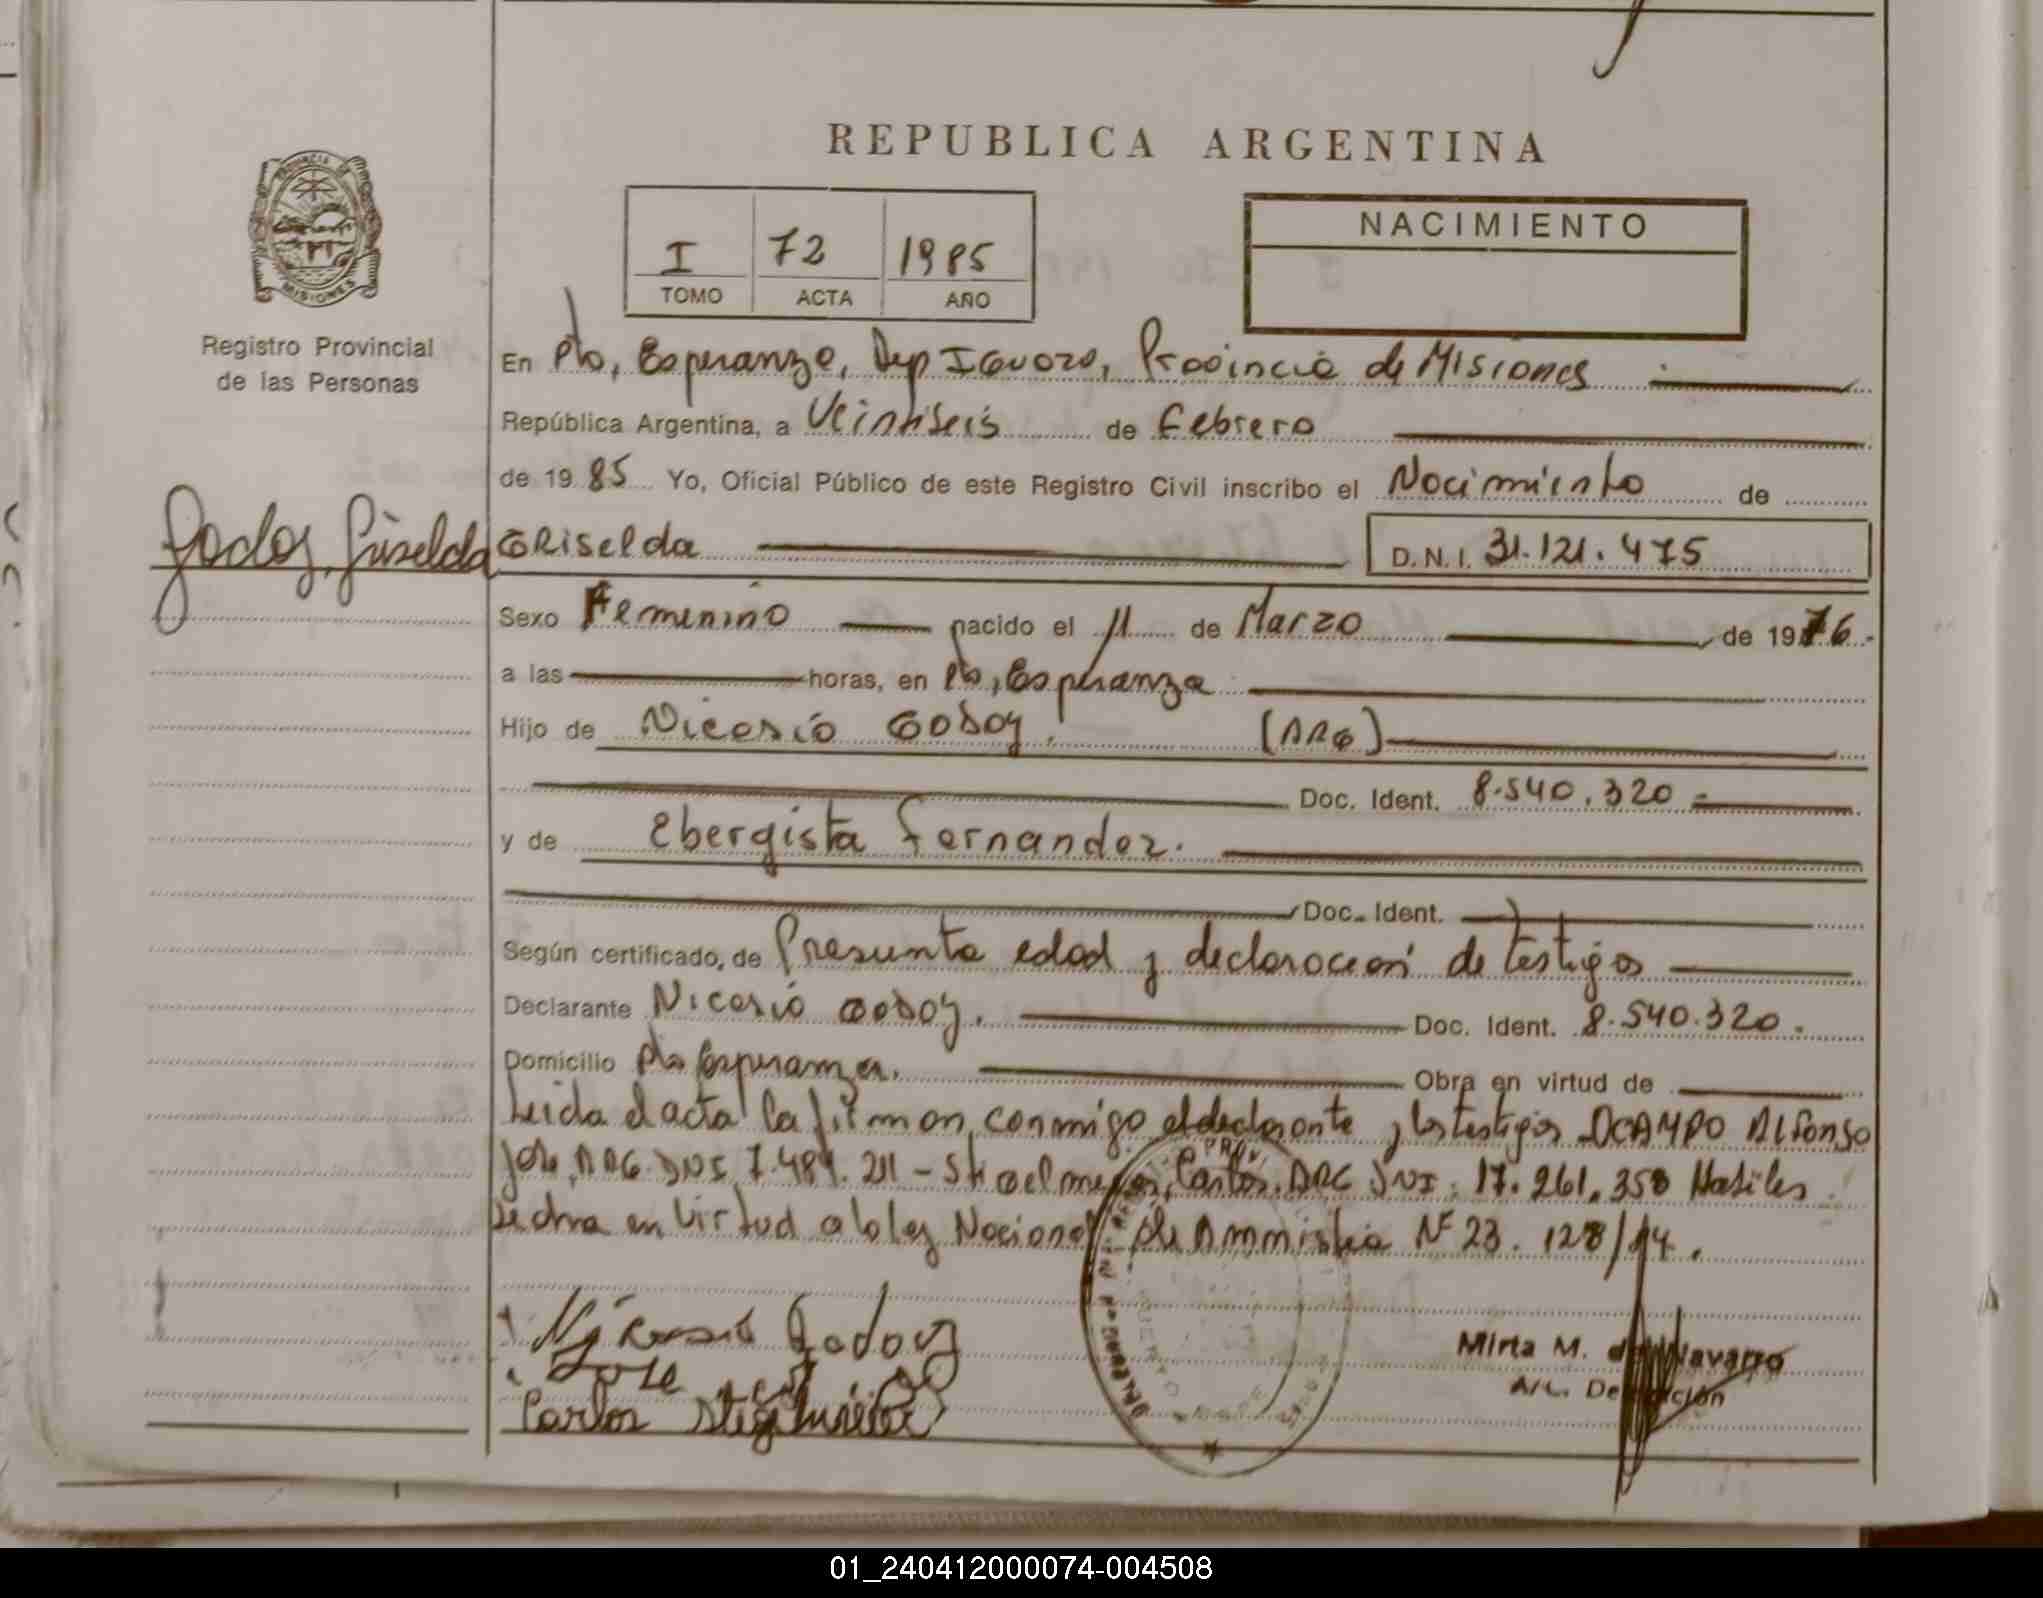 REPUBLICA ARGENTINA
PROVINCIA DE
MISIONES
Registro Provincial
de las Personas
I 72 1985
TOMO ACTA AÑO
NACIMIENTO
En Pto, Esperanza, Dep Iguazu, Provincia de Misiones
República Argentina, a Veintiseis de Febrero
de 1985 Yo, Oficial Público de este Registro Civil inscribo el Nacimiento de
Godoy, Griselda
GRiselda D.N.I. 31.121.475
Sexo Femenino nacido el 11 de Marzo de 1976.
a las horas, en Pto, Esperanza
Hijo de Nicasio Godoy. (ARG)
Doc. Ident. 8.540.320
y de Ebergista Fernandez.
Doc. Ident.
Según certificado, de Presunta edad y declaracion de testigos
Declarante Nicasio Godoy. Doc. Ident. 8.540.320.
Domicilio Pto Esperanza. Obra en virtud de
Leida el acta la firman conmigo el declarante y los testigos OCAMPO Alfonso
Jose, ARG. DNI 7.489.211 - Carlos, ARG DNI. 17.261.358 Habiles
Se obra en virtud a la ley Nacional de Ammistia Nº 23.128/84.
Nicasio Godoy
Jose
Carlos
Mirta M. de Navarro
A/C. Delegación
01_240412000074-004508